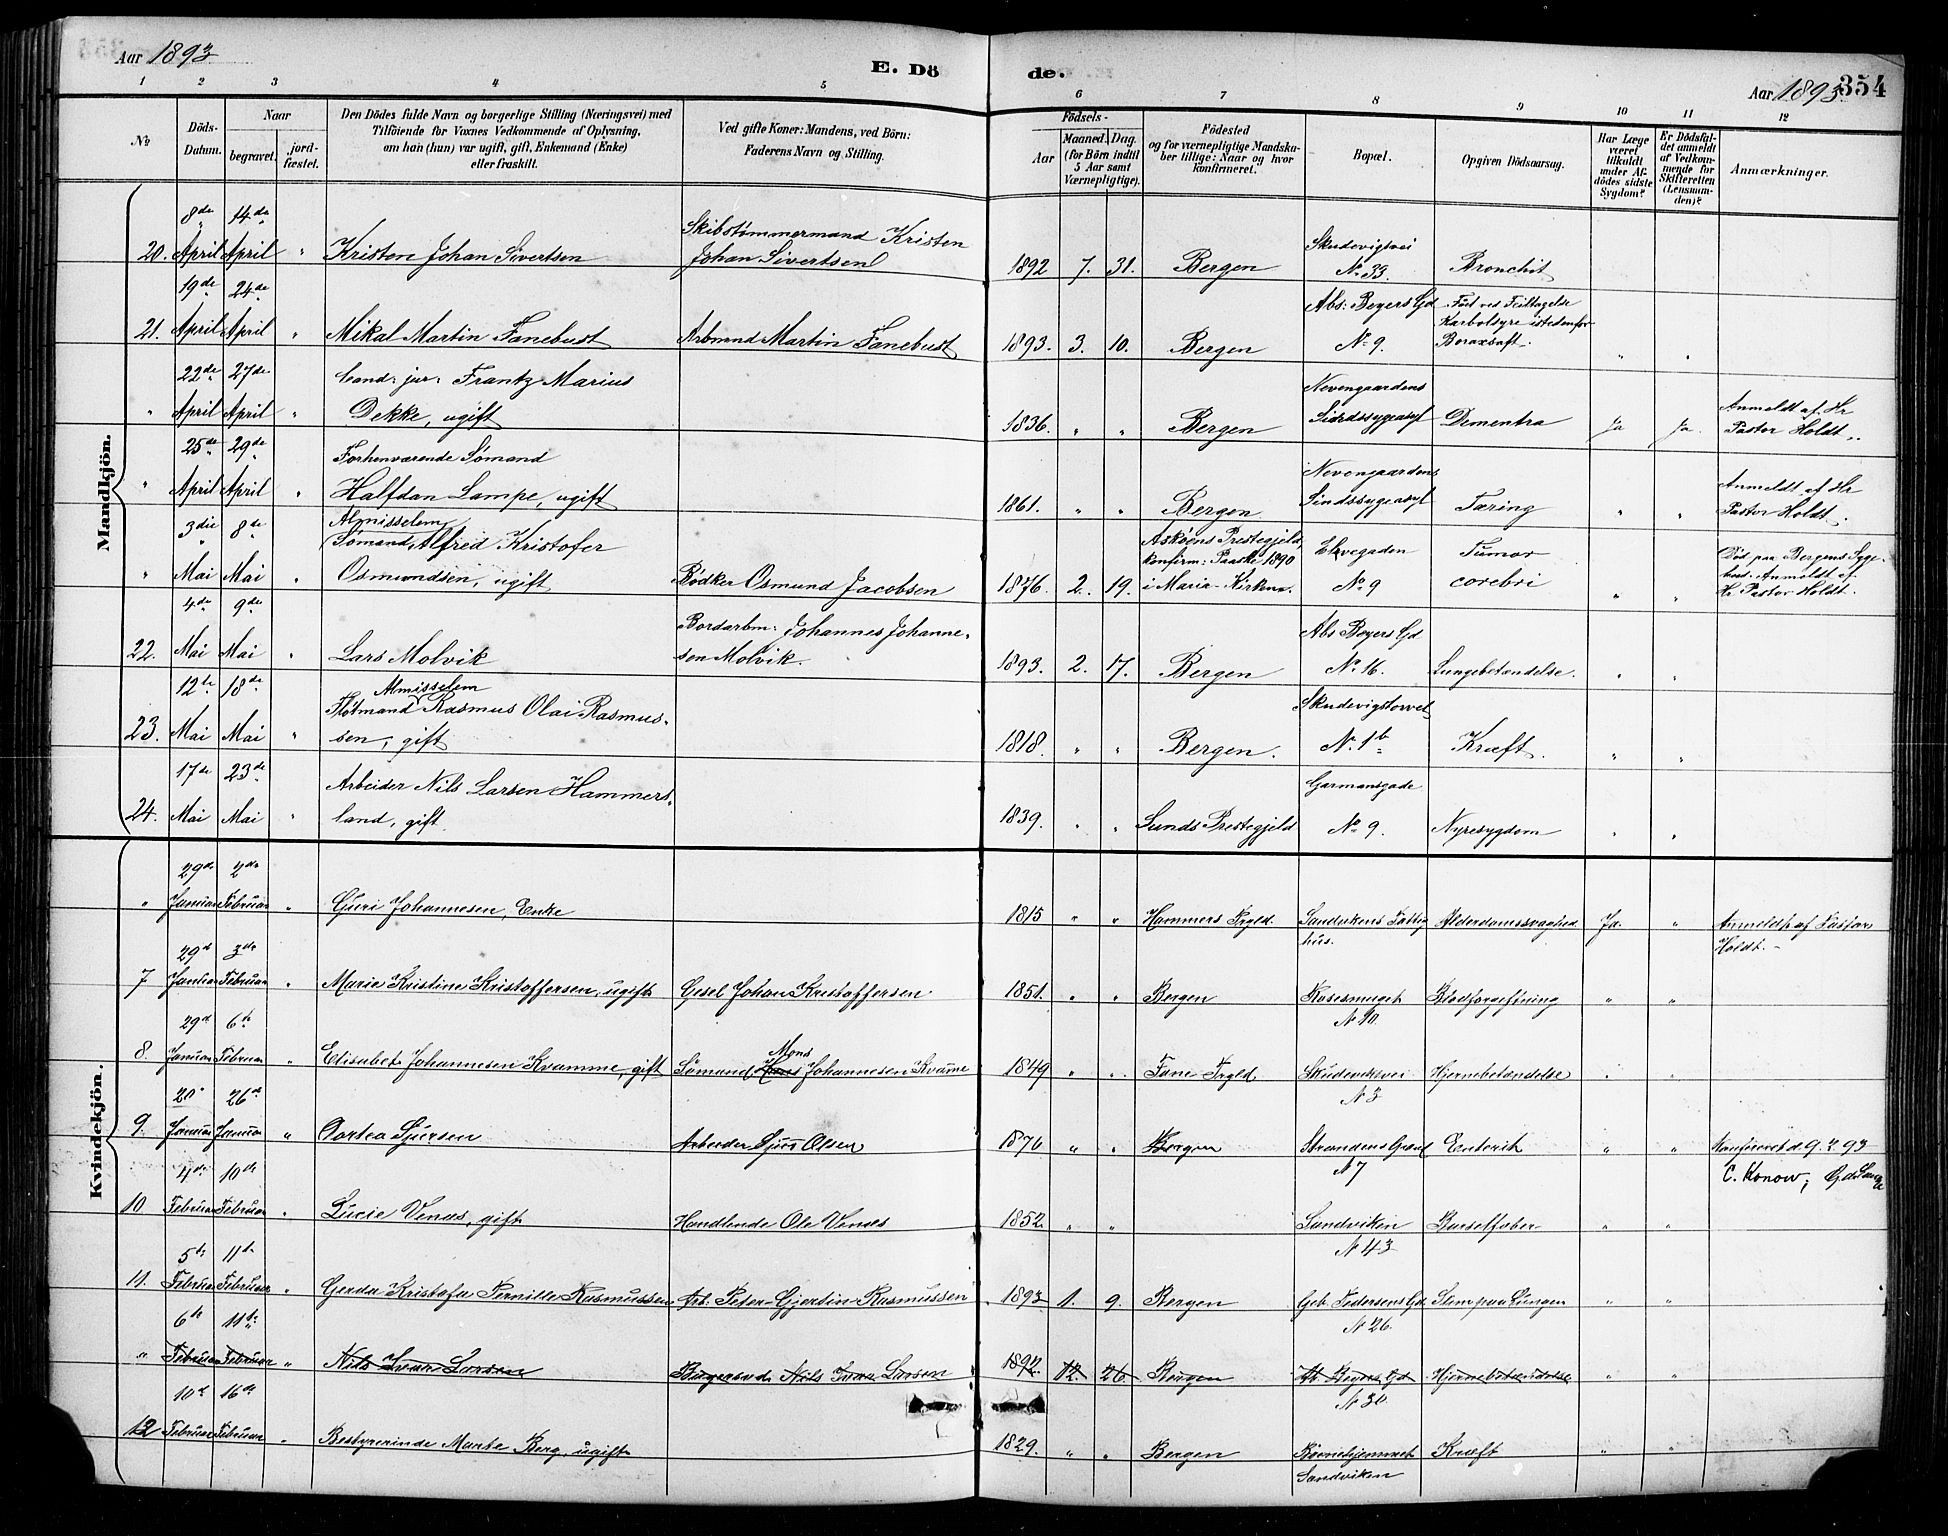 Aar 1893
E. Dö
de.
Aar 1893.
354
1 2 3 4 5 6 7 8 9 10 11 12
No
Döds-
Datum.
Naar
begravet.
jord-
fæstet.
Den Dödes fulde Navn og borgerlige Stilling (Næringsvei) med
Tilföiende for Voxnes Vedkommende af Oplysning,
om han (hun) var ugift, gift, Enkemand (Enke)
eller fraskilt.
Ved gifte Koner: Mandens, ved Börn:
Faderens Navn og Stilling.
Födsels-
Aar
Maaned. Dag.
(for Börn indtil
5 Aar samt
Værnepligtige).
Födested
og for værnepligtige Mandska-
ber tillige: Naar og hvor
konfirmeret.
Bopæl.
Opgiven Dödsaarsag.
Har Læge
været
tilkaldt
under Af-
dödes sidste
Sygdom?
Er Dödsfal-
det anmeldt
af Vedkom-
mende for
Skifteretten
(Lensman-
den)?
Anmærkninger.
Mandkjön.
8de 14de
20. April April " Kristen Johan Sivertsen
Skibstømmermand Kristen
Johan Sivertsen
1892 7. 31. Bergen
Skudevigsvei
No 33.
Bronchit
19de 24de
21. April April " Mikal Martin Fanebust
Arbmand Martin Fanebust
1893. 3. 10. Bergen
Abs: Beyers Gd
No 9.
Død ved Feiltagelse
Karbolsyre istedenfor
Boraxsaft.
" "
22de 27de
" April April " Cand: jur: Frantz Marius
Dekke, ugift
1836. " " Bergen
Nevengaardens
Sindssygeasyl
Dementia
Ja Ja.
Anmeldt af Hr
Pastor Holdt.
25de 29de
" April April " Forhenværende Sømand
Halfdan Lampe, ugift
1861. " " Bergen
Nevengaardens
Sindssygeasyl
Tæring
" "
Anmeldt af Hr
Pastor Holdt.
3die 8de
" Mai Mai " Almisselem
Sømand Alfred Kristofer
Osmundsen, ugift
Bødker Osmund Jacobsen
1876. 2. 19.
Askøens Prestegjeld,
konfirm: Paaske 1890
i Maria-Kirken.
Elvegaden
No 9
Tumor
cerebri
" "
Død paa Bergens Syge-
hus. Anmeldt af
Hr Pastor Holdt.
4de 9de
22. Mai Mai " Lars Molvik
Bordarbm: Johannes Johanne-
sen Molvik.
1893. 2. 17. Bergen
Abs Beyers Gd
No 16.
Lungebetændelse.
" "
12te 18de
23. Mai Mai " Almisselem
Fløtmand Rasmus Olai Rasmus-
sen, gift
1818. " " Bergen.
Skudevigstorvet
No 1b
Kræft.
" "
17de 23de
24. Mai Mai " Arbeider Nils Larsen Hammers-
land, gift
1839. " " Sunds Prestegjeld
Garmansgade
No 9.
Nyresygdom
" "
Kvindekjön.
29de 2den
" Januar Februar " Guri Johannesen, Enke
1815 " " Hammers Prgld.
Sandvikens Fattig
hus.
Alderdomssvaghed.
Ja. "
Anmeldt af Pastor
Holdt. -
29d 3de
7 Januar Februar " Marie Kristine Kristoffersen, ugift
Gesel Johan Kristoffersen.
1851. " " Bergen
Rosesmuget
N 10.
Blodforgiftning
" "
29d 6te
8. Januar Februar " Elisabet Johannesen Kvamme, gift
Mons
Sømand Hans Johannesen Kvame
1849 " " Fane Prgld
Skudeviksvei
N 3
Hjernebetændelse
" "
20 26de
9. Januar Januar " Dortea Sjursen
Arbeider Sjurs Olsen
1870 " " Bergen
Strandens Gaard
N 7
Enterit
" "
Konfirmeret d. 9. 2 93
C. Konow;
4de 10de
10 Februar Februar " Lucie Venæs, gift
Handlende Ole Venæs
1852 " "
Sandviken
N 43
Barselfeber
" "
5te 11te
11. Februar Februar " Gerda Kristofa Pernille Rasmussen
Arb: Peter Gjerdin Rasmussen
1893 1. 9. Bergen
Geb. Pedersens Gd.
N 26.
Slim paa Lungen
" "
6te 11te
" Februar Februar " Nils Ivar Larsen
Bagersvd. Nils Ivar Larsen
1892. 12. 26 Bergen
Ab. Beyers Gd
N 30.
Hjernebetændelse
" "
10d 16de
12 Februar Februar " Bestyrerinde Marte Berg, ugift
1829. " " Bergen
Børnehjemmet
Sandviken
Kræft
" "